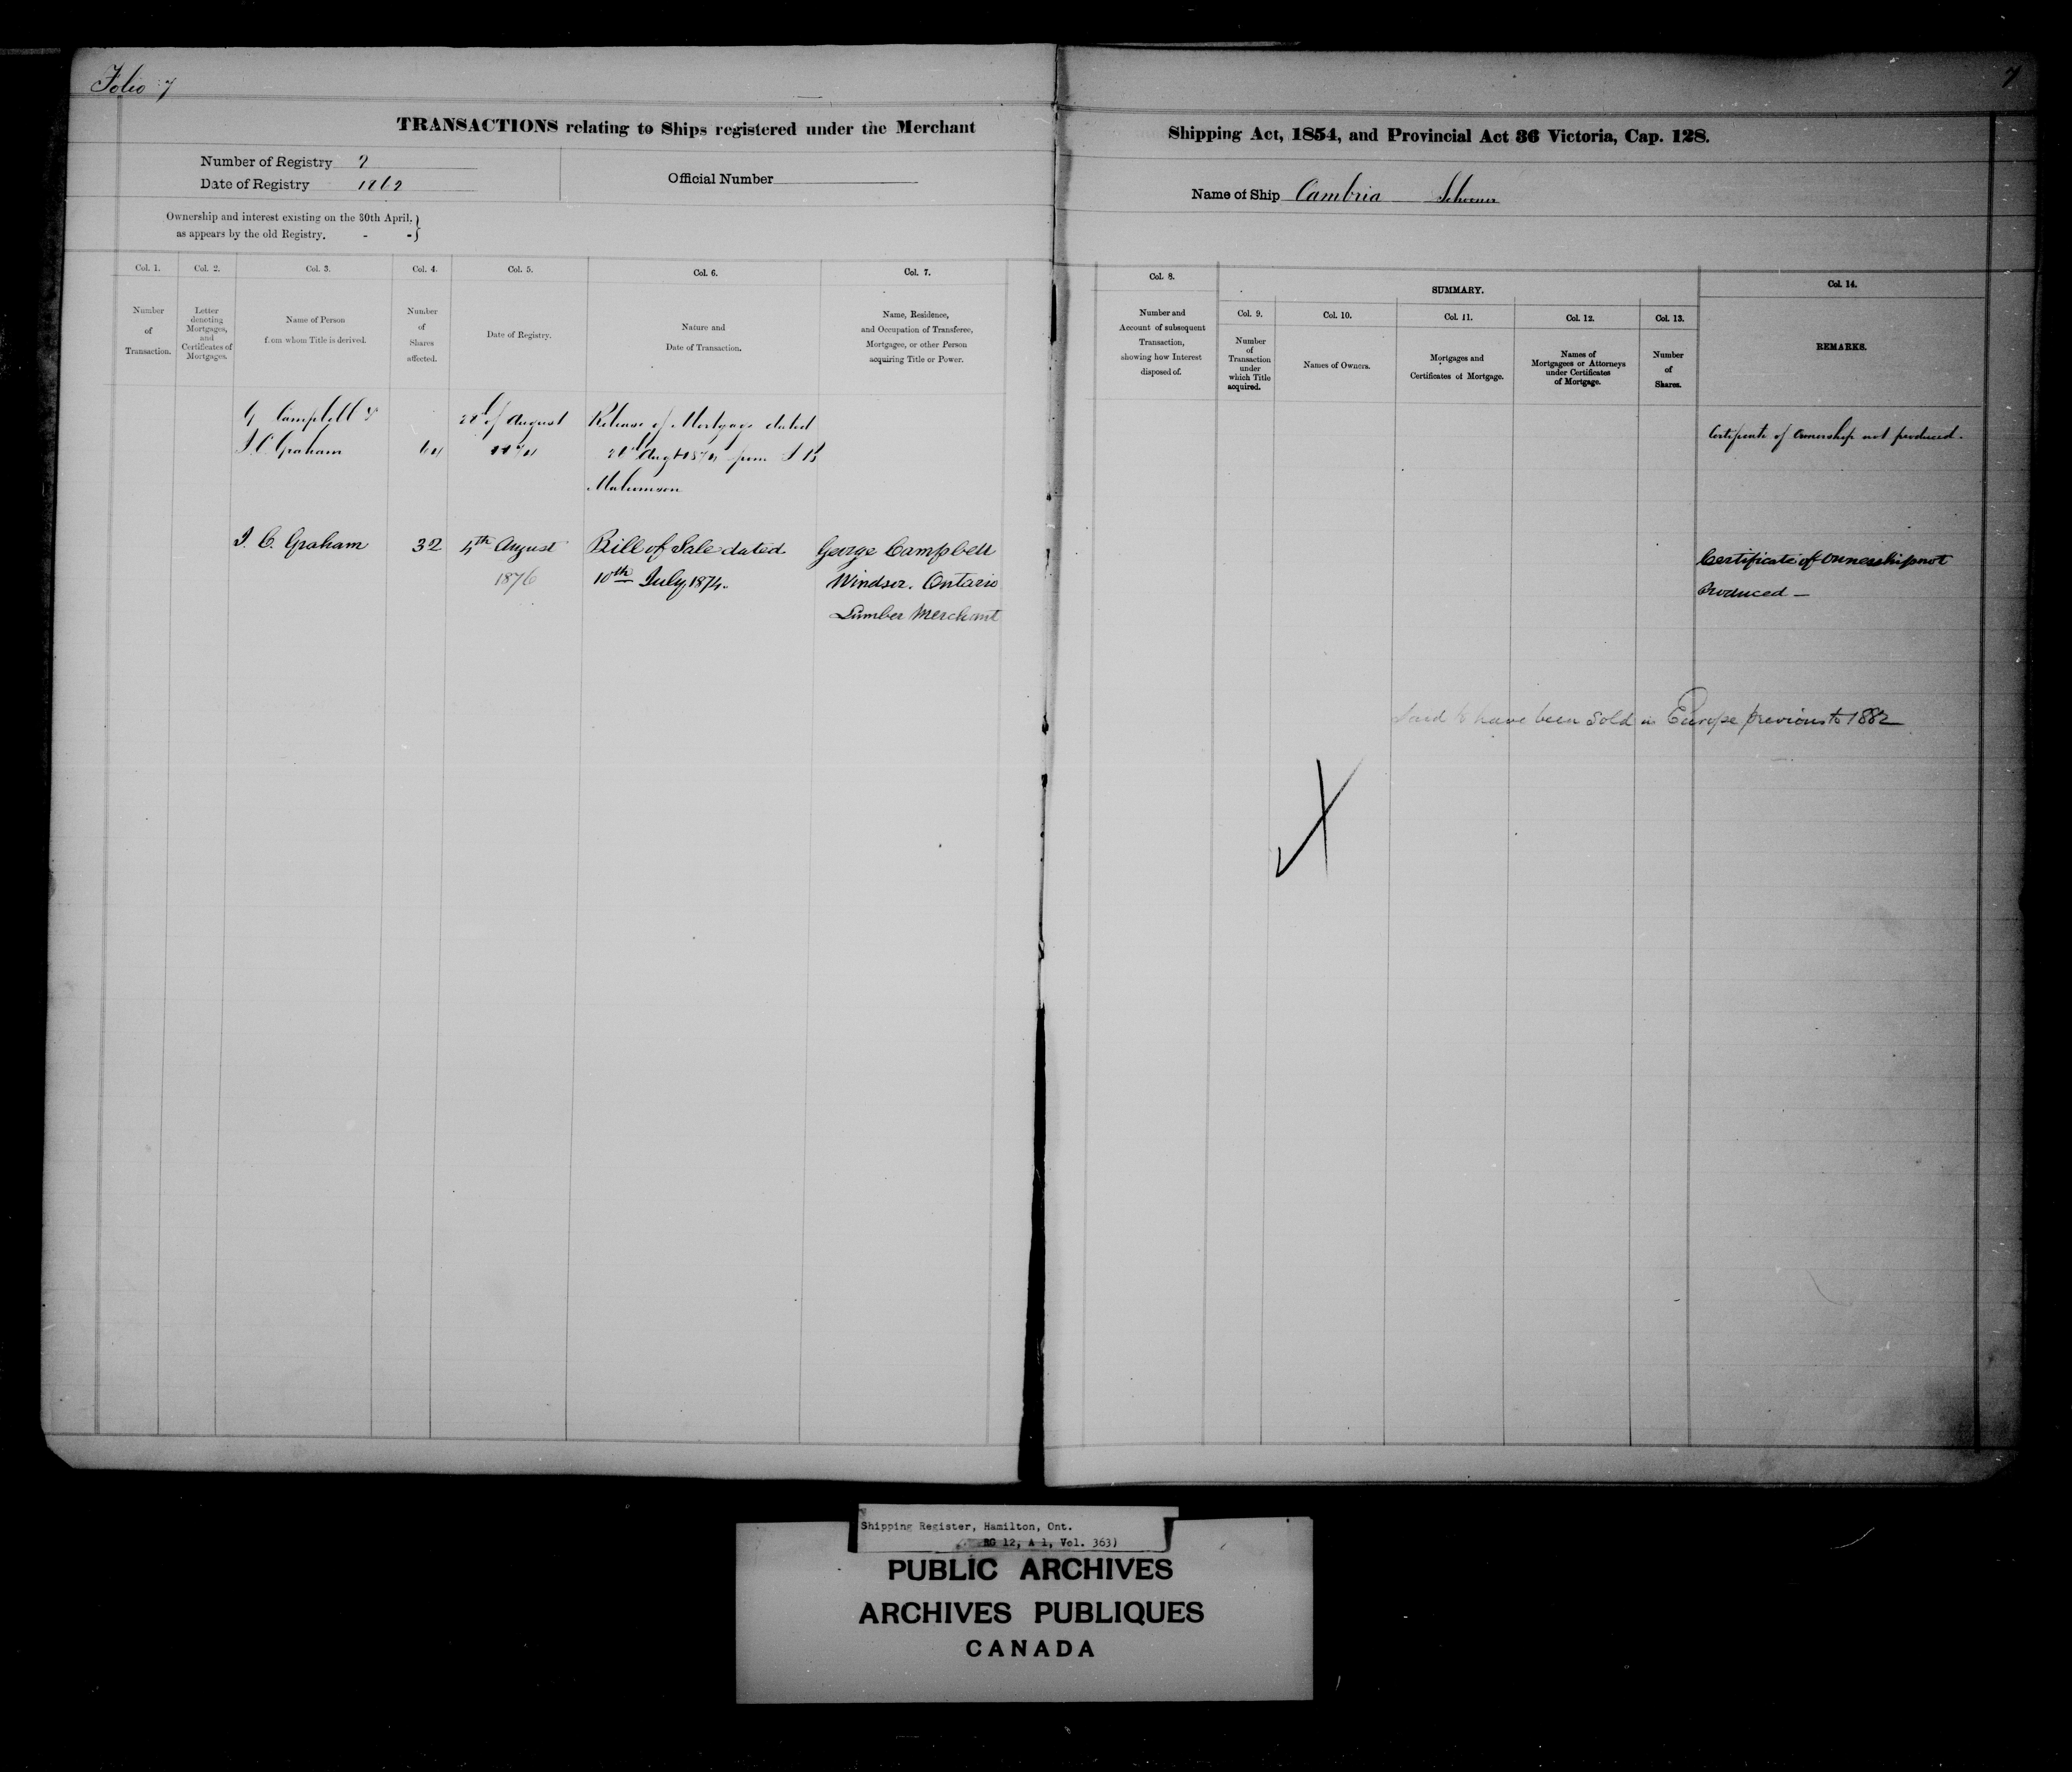 Folio 7
7
TRANSACTIONS relating to Ships registered under the Merchant
Shipping Act, 1854, and Provincial Act 36 Victoria, Cap. 128.
Number of Registry 7
Date of Registry 1862
Official Number
Name of Ship Cambria Schooner
Ownership and interest existing on the 30th April, }
as appears by the old Registry. - - }
Col. 1.
Number
of
Transaction.
Col. 2.
Letter
denoting
Mortgages,
and
Certificates of
Mortgages.
Col. 3.
Name of Person
from whom Title is derived.
Col. 4.
Number
of
Shares
affected.
Col. 5.
Date of Registry.
Col. 6.
Nature and
Date of Transaction.
Col. 7.
Name, Residence,
and Occupation of Transferee,
Mortgagee, or other Person
acquiring Title or Power.
Col. 8.
Number and
Account of subsequent
Transaction,
showing how Interest
disposed of.
SUMMARY.
Col. 9.
Number
of
Transaction
under
which Title
acquired.
Col. 10.
Names of Owners.
Col. 11.
Mortgages and
Certificates of Mortgage.
Col. 12.
Names of
Mortgagees or Attorneys
under Certificates
of Mortgage.
Col. 13.
Number
of
Shares.
Col. 14.
REMARKS.
G Campbell &
J. C. Graham
64
of August
1874
Release of Mortgage dated
Augt 1874 from
Certificate of Ownership not produced.
J. C. Graham
32
4th August
1876
Bill of Sale dated
10th July 1874.
George Campbell
Windsor. Ontario
Lumber Merchant
Certificate of Ownership not
Produced —
Said to have been sold in Europe previous to 1882
Shipping Register, Hamilton, Ont.
RG 12, A 1, Vol. 363)
PUBLIC ARCHIVES
ARCHIVES PUBLIQUES
CANADA